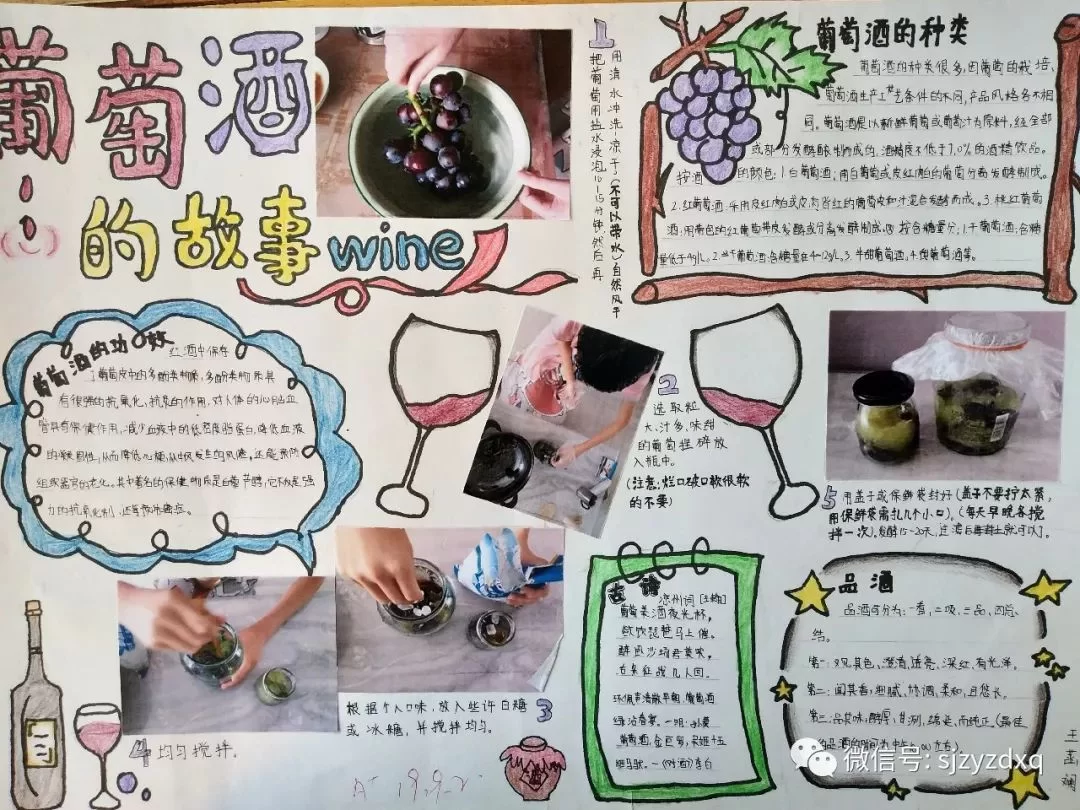 葡萄酒
的故事 wine
1
用清水冲洗凉干(不可以带水)自然风干
把葡萄用盐水浸泡10-15分钟,然后再
葡萄酒的种类
葡萄酒的种类很多,因葡萄的栽培、
葡萄酒生产工艺条件的不同,产品风格各不相
同。葡萄酒是以新鲜葡萄或葡萄汁为原料,经全部
或部分发酵酿制而成的,酒精度不低于7.0%的酒精饮品。
按酒的颜色:1.白葡萄酒:用白葡萄或皮红肉白的葡萄分离发酵制成。
2.红葡萄酒:采用皮红肉白或皮肉皆红的葡萄皮和汁混合发酵而成。3.桃红葡萄
酒:用带色的红葡萄带皮发酵或分离发酵制成。按含糖量分:1.干葡萄酒:含糖
量低于4g/L。2.半干葡萄酒:含糖量在4-12g/L。3.半甜葡萄酒。4.甜葡萄酒等。
葡萄酒的功效
红酒中保存
了葡萄皮中的多酚类物质,多酚类物质具
有很强的抗氧化、抗炎的作用,对人体的心脑血
管具有保健作用,减少血液中的低密度脂蛋白,降低血液
组织器官的老化。其中著名的保健物质是白藜芦醇,它不仅是强
力的抗氧化剂,还有预防癌症。
2
选取粒
大、汁多、味甜
的葡萄捏碎放
入瓶中。
(注意:烂口破口软很软
的不要)
5 用盖子或保鲜袋封好(盖子不要拧太紧,
用保鲜袋需扎几个小口),(每天早晚各搅
拌一次)。发酵15-20天,
根据个人口味,放入些许白糖
或冰糖,并搅拌均匀。
3
4 均匀搅拌。
古诗
凉州词 [王翰]
葡萄美酒夜光杯,
欲饮琵琶马上催。
醉卧沙场君莫笑,
古来征战几人回。
葡萄酒,金叵罗,吴姬十五
细马驮。—《对酒》李白
品酒
品酒可分为:一看、二吸、三品、四总
结。
第一:观其色、澄清、透亮、深红、有光泽。
第二:闻其香,
第三:品其味,醇厚、甘冽、绵长、而纯正(最佳
19.9.2
微信号: sjzyzdxq